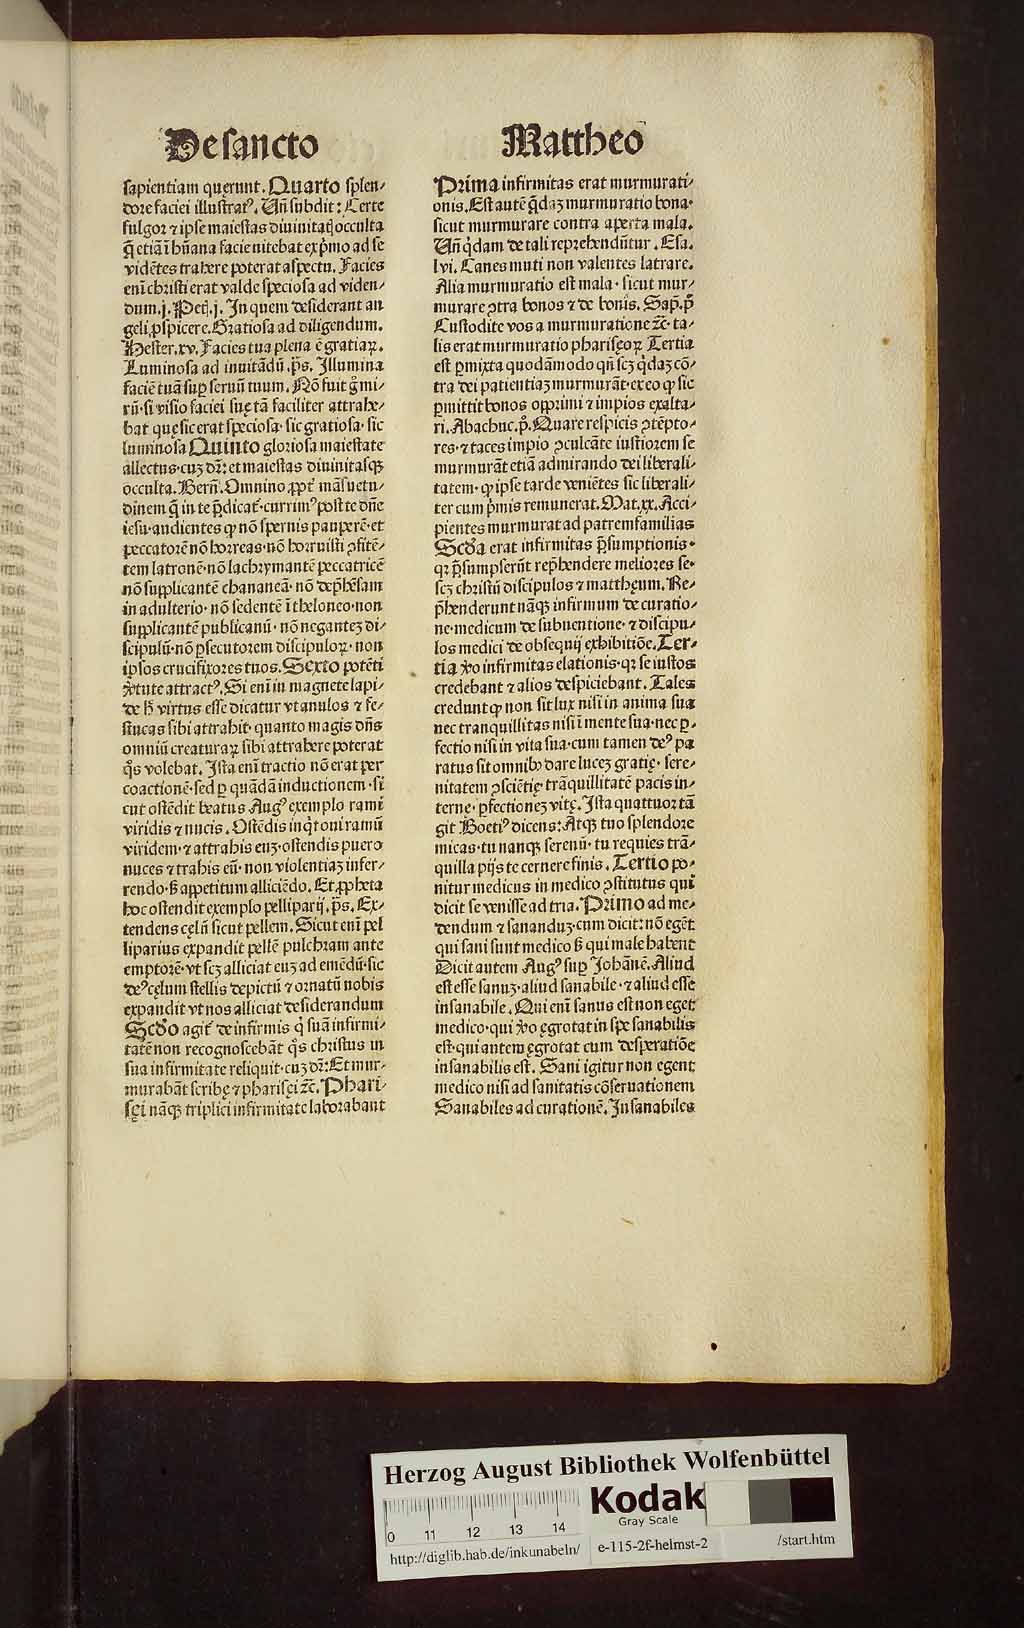 De sancto Mattheo
sapientiam querunt. Quarto splen-
dore faciei illustratꝰ. Vñ subdit: Certe
fulgor ⁊ ipse maiestas diuinitatꝭ occulta
q̄ etiā ī hūana facie nitebat ex pͥmo ad se
vidētes trahere poterat aspectu. Facies
enī christi erat valde speciosa ad viden-
dum. j. Petꝭ. j. In quem desiderant an
geli ꝓspicere. Gratiosa ad diligendum.
Hester. xv. Facies tua plena ē gratiaꝝ.
Luminosa ad inuitādū. p̄s. Illumina
faciē tuā suꝑ seruū tuum. Nō fuit gͦ mi-
rū· si visio faciei suę tā faciliter attrahe-
bat que sic erat speciosa· sic gratiosa· sic
luminosa Quinto gloriosa maiestate
allectus· cuꝫ dr̄: et maiestas diuinitasqꝫ
occulta. Berñ. Omnino ꝓpt̄ māsuetu-
dinem q̄ in te p̄dicat̄· currimꝰ post te dn̄e
iesu· audientes ꝙ nō spernis pauperē· et
peccatorē nō horreas· nō horruisti ꝯfitē-
tem latronē· nō lachrymantē peccatricē
nō supplicantē chananeā· nō dep̄hēsam
in adulterio· nō sedentē ī theloneo· non
supplicantē publicanū· nō negantez di-
scipulū· nō ꝑsecutorem discipuloꝝ· non
ipsos crucifixores tuos. Sexto potēti
v̓tute attractꝰ. Si enī in magnete lapi-
de hͦ virtus esse dicatur vt anulos ⁊ fe-
stucas sibi attrahit· quanto magis dn̄s
omniū creaturaꝝ sibi attrahere poterat
qͦs volebat. Ista enī tractio nō erat per
coactionē· sed ꝑ quādā inductionem· si
cut ostēdit beatus Augꝰ exemplo rami
viridis ⁊ nucis. Ostēdis inqͥt oui ramū
viridem· ⁊ attrahis euꝫ· ostendis puero
nuces ⁊ trahis eū· non violentiaꝫ infer-
rendo· sꝫ appetitum alliciēdo. Et ꝓpheta
hoc ostendit exemplo pelliparij. p̄s. Ex-
tendens cęlū sicut pellem. Sicut enī pel
liparius expandit pellē pulchram ante
emptorē· vt scꝫ alliciat euꝫ ad emēdū· sic
deꝰ cęlum stellis depictū ⁊ ornatū nobis
expandit vt nos alliciat desiderandum
Scd̓o agit̄ de infirmis qͥ suā infirmi-
tatē non recognoscebāt qͦs christus in
sua infirmitate reliquit· cuꝫ dr̄: Et mur-
murabāt scribę ⁊ pharisęi ⁊c̄. Phari-
sęi nāqꝫ triplici infirmitate laborabant
Prima infirmitas erat murmurati-
onis. Est autē q̄daꝫ murmuratio bona·
sicut murmurare contra aperta mala.
Vñ qͥdam de tali reprehendūtur. Esa.
lvi. Canes muti non valentes latrare.
Alia murmuratio est mala· sicut mur-
murare ꝯtra bonos ⁊ de bonis. Sap̄. pͦ
Custodite vos a murmuratione ⁊c̄· ta-
lis erat murmuratio pharisęoꝝ Tertia
est ꝑmixta quodāmodo qn̄ scꝫ qͥdaꝫ cō-
tra dei patientiaꝫ murmurāt· ex eo ꝙ sic
ꝑmittit bonos opprimi ⁊ impios exalta-
ri. Abachuc. pͦ. Quare respicis ꝯtēpto-
res· ⁊ taces impio ꝯculcāte iustiorem se
murmurāt etiā admirando dei liberali-
tatem· ꝙ ipse tarde veniētes sic liberali-
ter cum pͥmis remunerat. Mat. xx. Acci-
pientes murmurāt ad patremfamilias
Scd̓a erat infirmitas p̄sumptionis·
qꝛ p̄sumpserūt rep̄hendere meliores se·
scꝫ christū discipulos ⁊ matthęum. Re-
p̄henderunt nāqꝫ infirmum de curatio-
ne· medicum de subuentione· ⁊ discipu-
los medici de obsequij exhibitiōe. Ter-
tia v̓o infirmitas elationis· qꝛ se iustos
credebant ⁊ alios despiciebant. Tales
credunt ꝙ non sit lux nisi in anima sua
nec tranquillitas nisi ī mente sua· nec ꝑ-
fectio nisi in vita sua· cum tamen deꝰ pa
ratus sit omnibꝰ dare luceꝫ gratię· sere-
nitatem ꝯsciētię trāquillitatē pacis in-
terne· ꝑfectioneꝫ vitę. Ista quattuor tā
git Boetiꝰ dicens: Atqꝫ tuo splendore
micas· tu nanqꝫ serenū· tu requies trā-
quilla pijs te cernere finis. Tertio po-
nitur medicus in medico ꝯstitutus qui
dicit se venisse ad tria. Primo ad me-
dendum ⁊ sananduꝫ· cum dicit: nō egēt
qui sani sunt medico sꝫ qui male habent
Dicit autem Augꝰ suꝑ Johānē. Aliud
est esse sanuꝫ· aliud sanabile· ⁊ aliud esse
insanabile. Qui enī sanus est non eget
medico· qui v̓o ęgrotat in spe sanabilis
est· qui autem ęgrotat cum desperatiōe
insanabilis est. Sani igitur non egent
medico nisi ad sanitatis cōseruationem
Sanabiles ad curationē. Insanabiles
Herzog August Bibliothek Wolfenbüttel
Kodak
Gray Scale
0 11 12 13 14
http://diglib.hab.de/inkunabeln/ e-115-2f-helmst-2 /start.htm